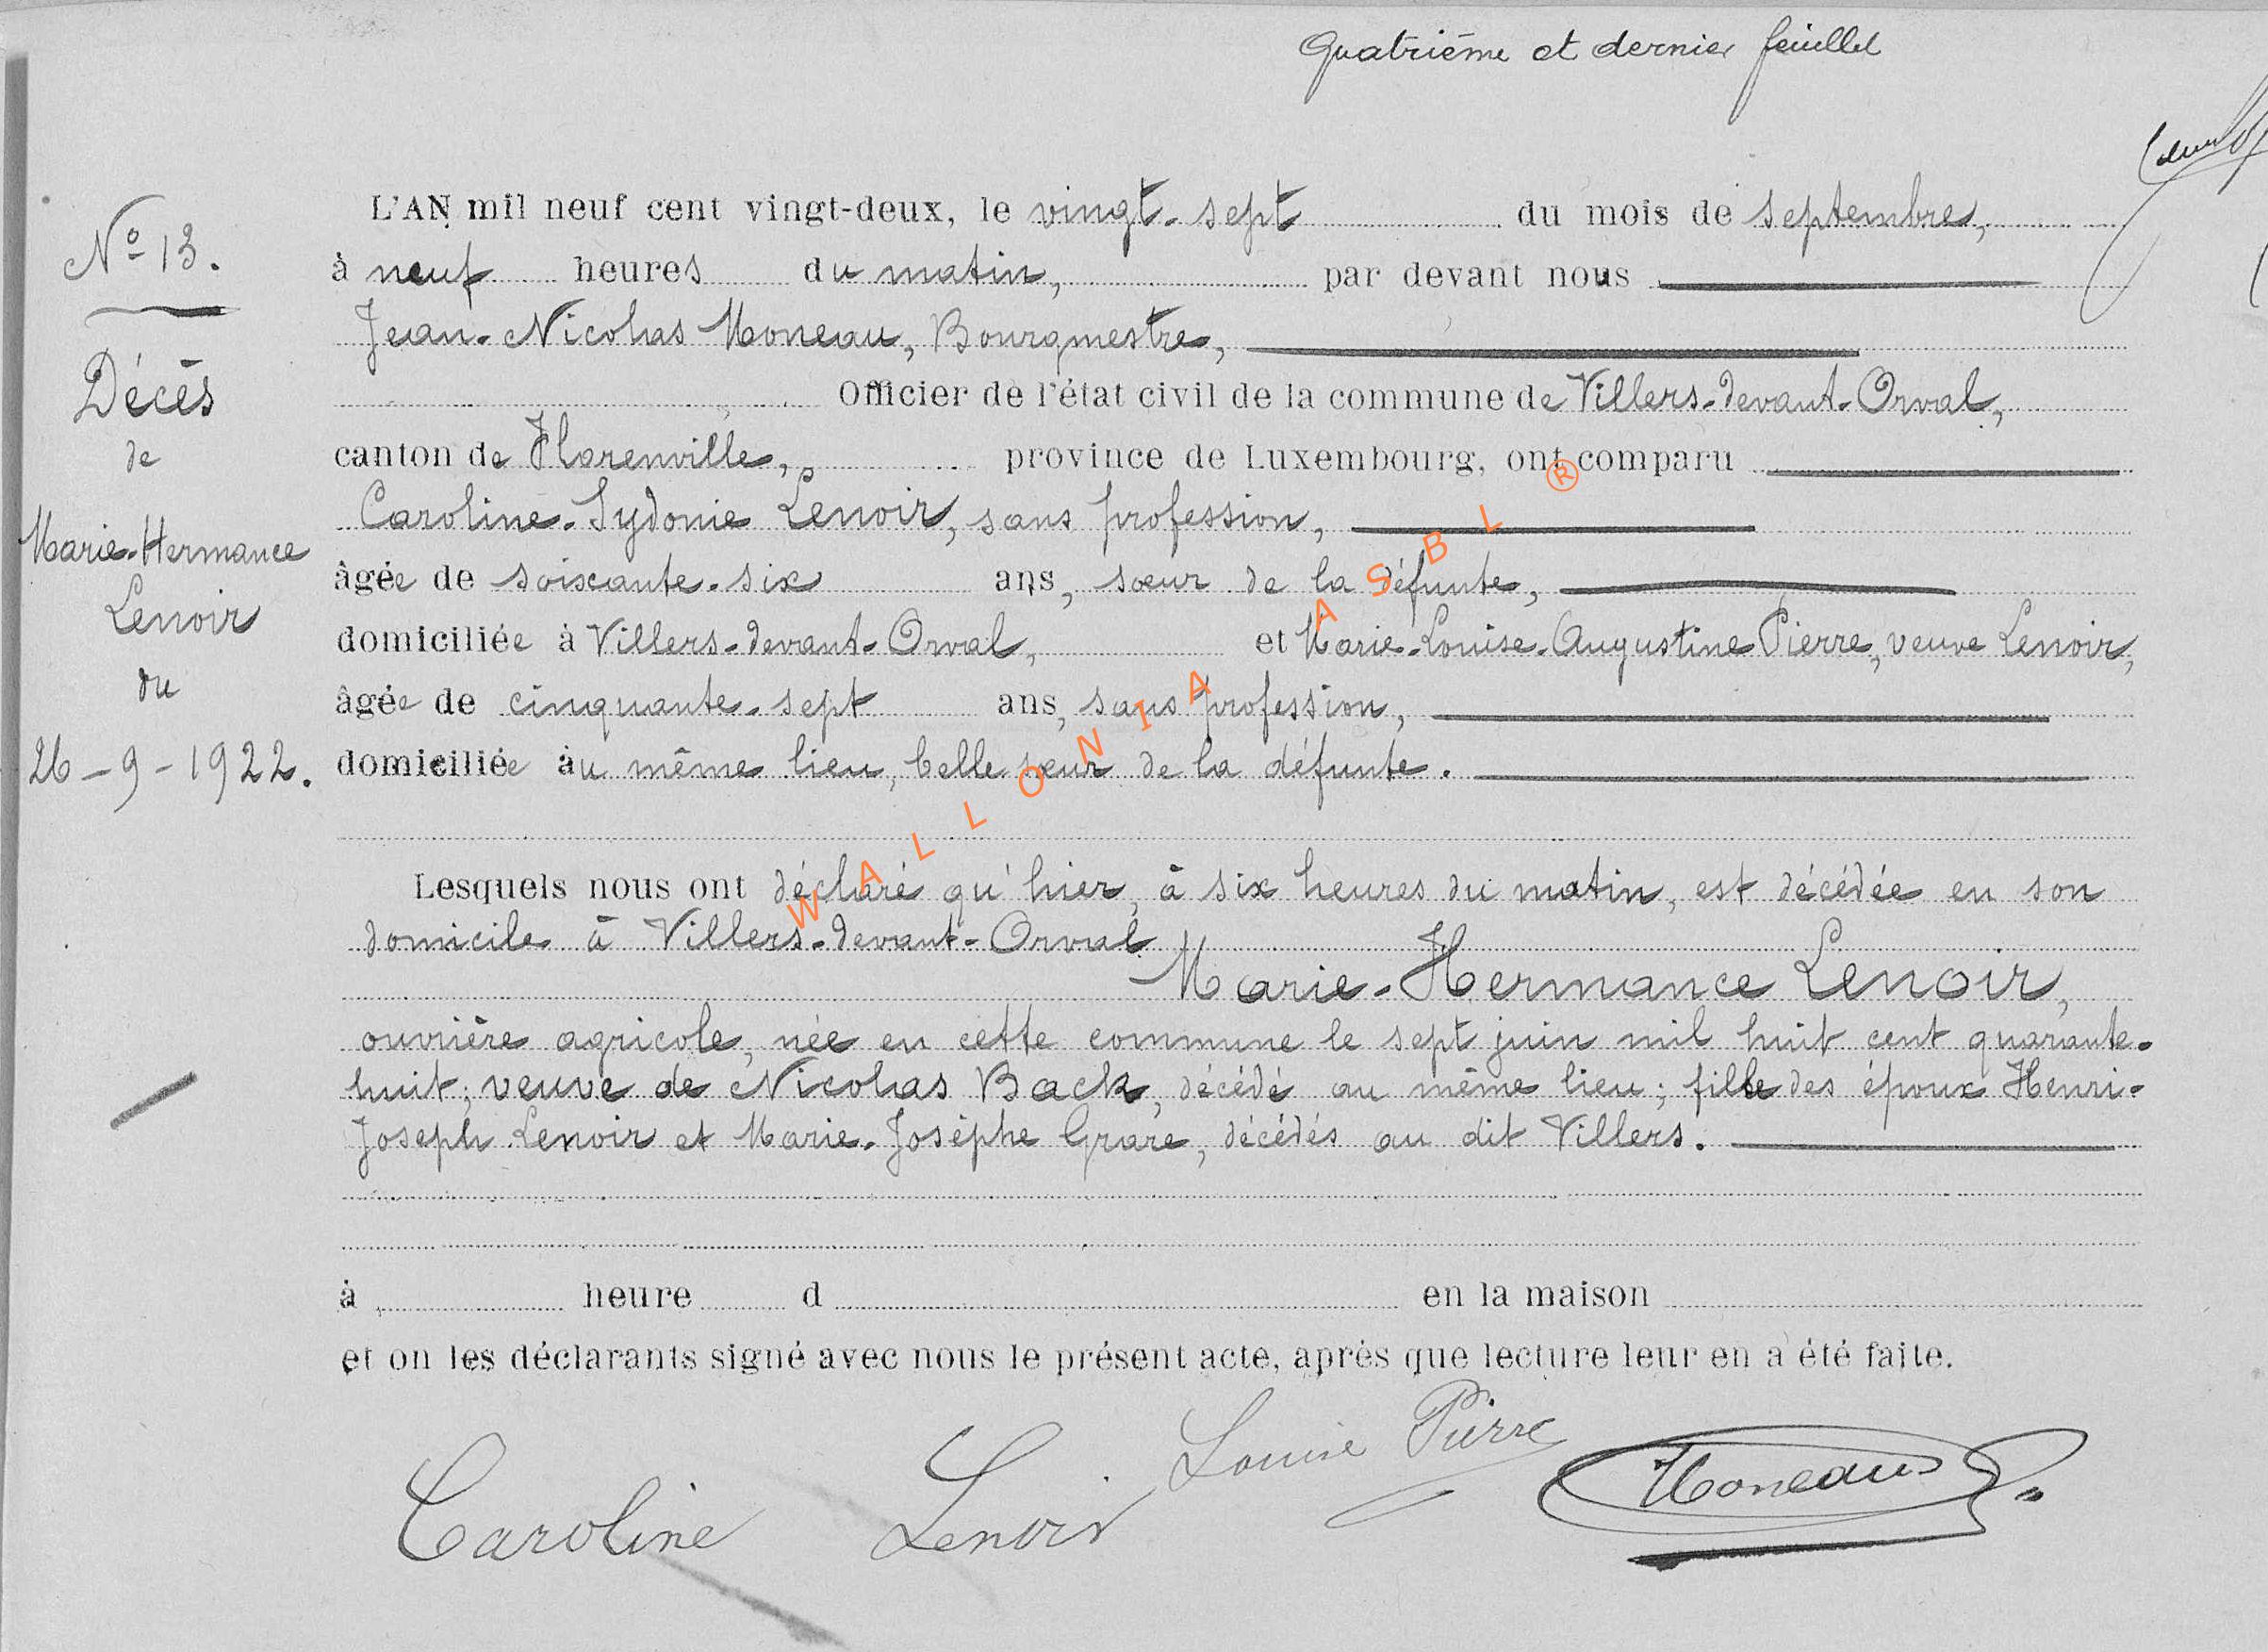 Quatrième et dernier feuillet
N° 13.
Décès
de
Marie-Hermance
Lenoir
du
26-9-1922.
L'AN mil neuf cent vingt-deux, le vingt-sept du mois de septembre,
à neuf heures du matin, par devant nous
Jean-Nicolas Moneau, Bourgmestre,
Officier de l'état civil de la commune de Villers-devant-Orval,
canton de Florenville, province de Luxembourg, ont comparu
Caroline-Sydonie Lenoir, sans profession,
âgée de soixante-six ans, sœur de la défunte,
domiciliée à Villers-devant-Orval, et Marie-Louise-Augustine Pierre, veuve Lenoir,
âgée de cinquante-sept ans, sans profession,
domiciliée au même lieu, belle sœur de la défunte.
Lesquels nous ont déclaré qu'hier, à six heures du matin, est décédée en son
domicile à Villers-devant-Orval
Marie-Hermance Lenoir,
ouvrière agricole, née en cette commune le sept juin mil huit cent quarante-
huit; veuve de Nicolas Back, décédé au même lieu; fille des époux Henri-
Joseph Lenoir et Marie-Josèphe Grare, décédés au dit Villers.
à heure d en la maison
et on les déclarants signé avec nous le présent acte, après que lecture leur en a été faite.
Caroline Lenoir
Louise Pierre
Moneau
WALLONIA ASBL ®